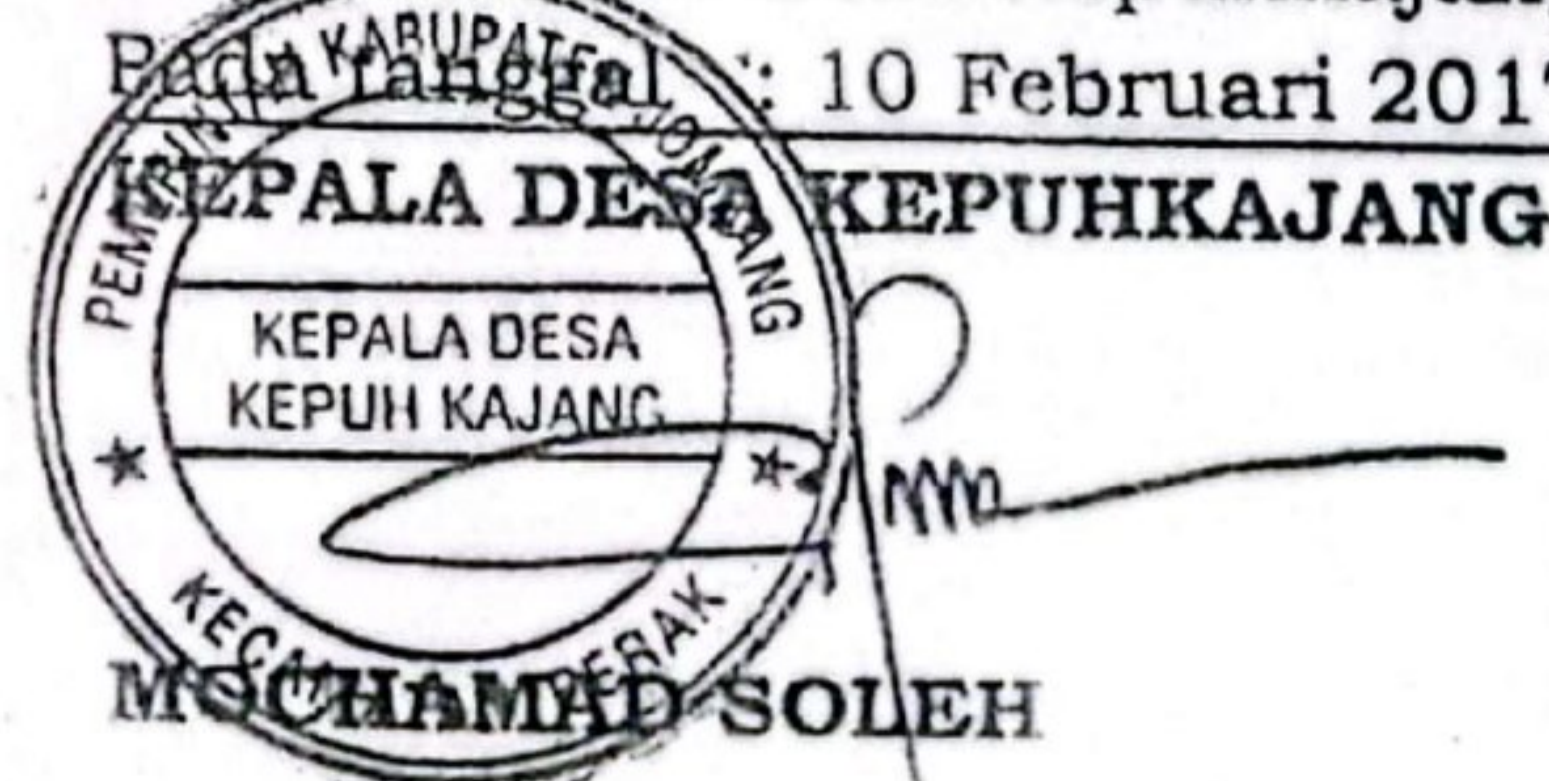 Pada Tanggal : 10 Februari 201
KEPALA DESA KEPUHKAJANG
PEMERINTAH KABUPATEN JOMBANG
KEPALA DESA
KEPUH KAJANG
KECAMATAN PERAK
MOCHAMAD SOLEH